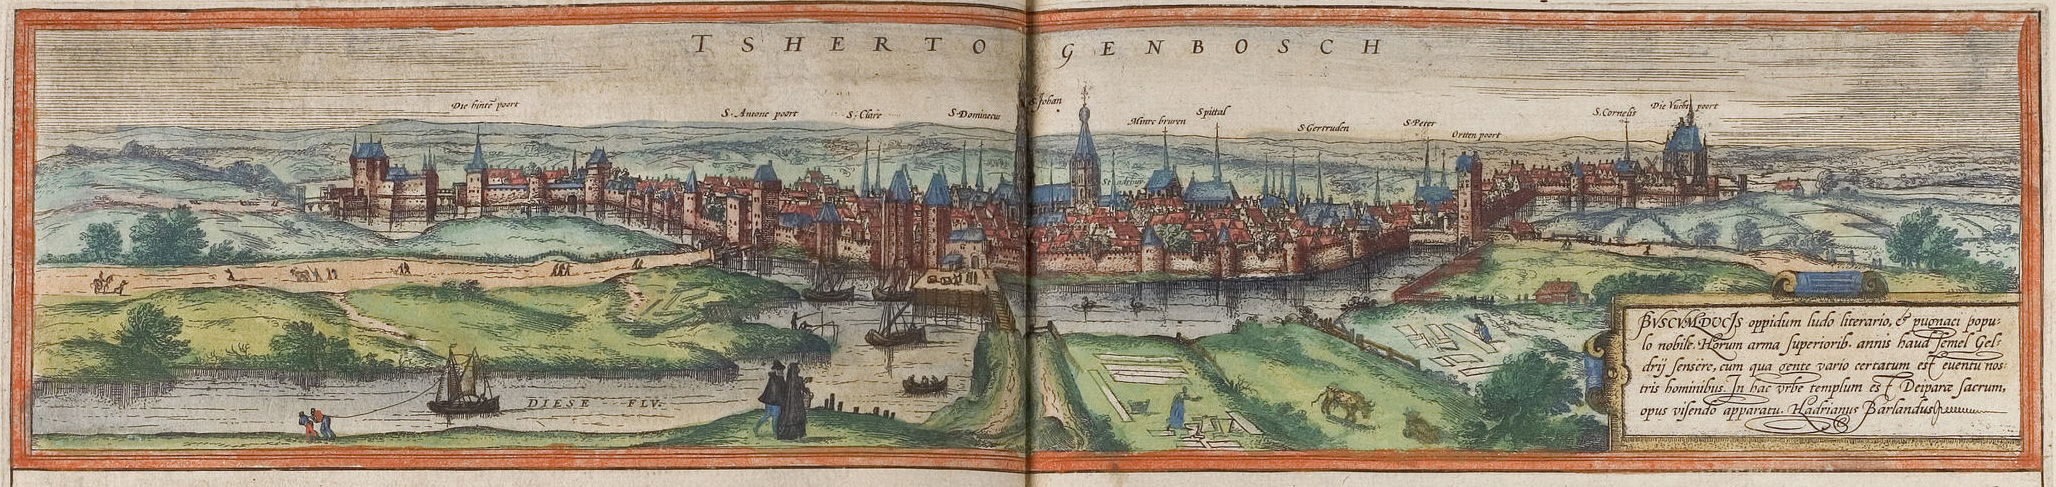 TSHERTOGENBOSCH
Die hinte poort
S. Antone poort
S. Clare
S. Dominicus
S. Johan
Minre bruren
Spittal
S. Gertruden
S. Peter
Ortten poort
S. Cornelis
Die Vucht poort
DIESE FLV.
BVSCVMDVCIS oppidum ludo literario, & pugnaci popu-
lo nobile. Horum arma superiorib. annis haud semel Gel-
drij sensere, cum qua gente vario certatum est euentu nos-
tris hominibus. In hac vrbe templum est Deiparæ sacrum,
opus visendo apparatu. Hadrianus Barlandus